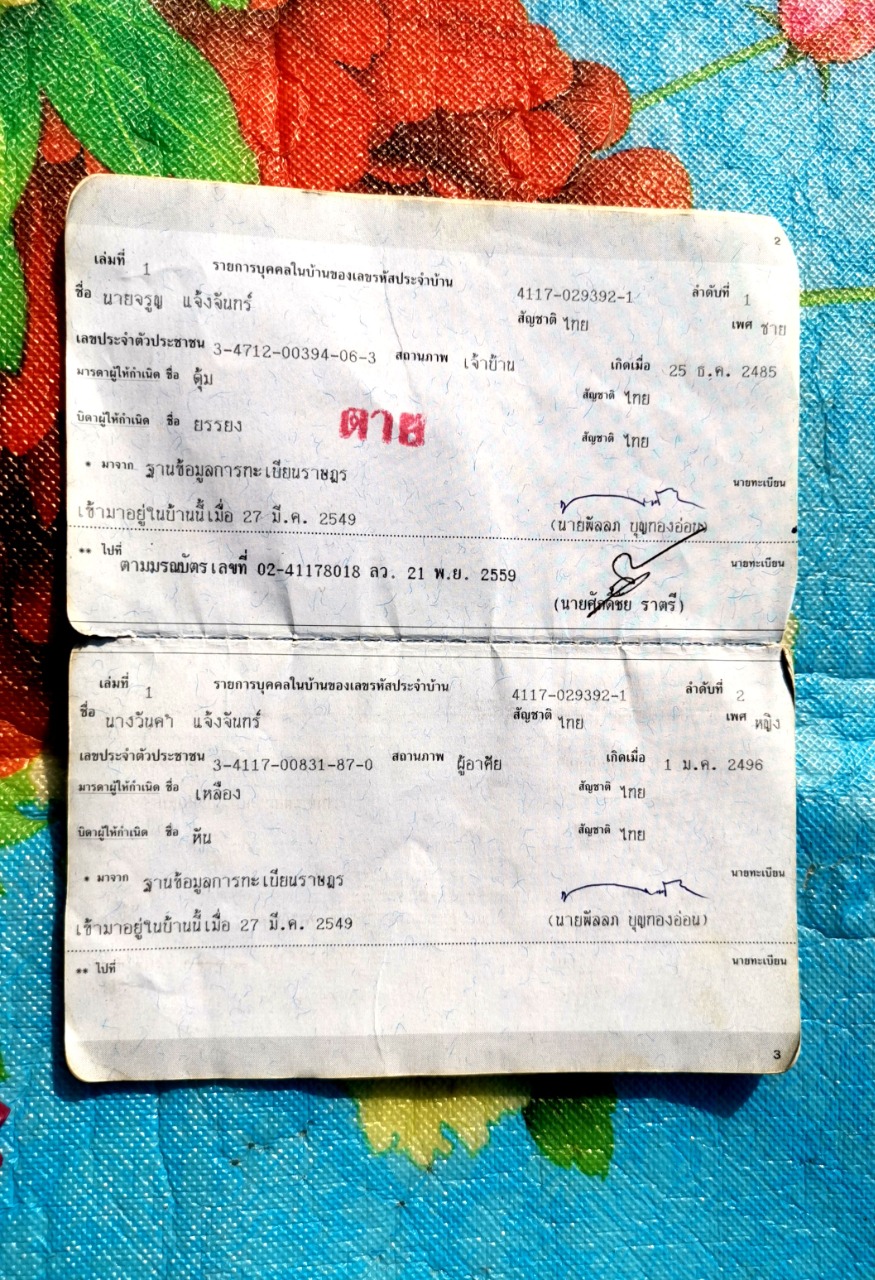 2
เล่มที่ 1 รายการบุคคลในบ้านของเลขรหัสประจำบ้าน 4117-029392-1 ลำดับที่ 1
ชื่อ นายจรูญ แจ้งจันทร์ สัญชาติ ไทย เพศ ชาย
เลขประจำตัวประชาชน 3-4712-00394-06-3 สถานภาพ เจ้าบ้าน เกิดเมื่อ 25 ธ.ค. 2485
มารดาผู้ให้กำเนิด ชื่อ ตุ้ม สัญชาติ ไทย
บิดาผู้ให้กำเนิด ชื่อ ยรรยง สัญชาติ ไทย
ตาย
* มาจาก ฐานข้อมูลการทะเบียนราษฎร นายทะเบียน
เข้ามาอยู่ในบ้านนี้เมื่อ 27 มี.ค. 2549 (นายพัลลภ บุญทองอ่อน)
** ไปที่ นายทะเบียน
ตามมรณบัตรเลขที่ 02-41178018 ลว. 21 พ.ย. 2559
(นายศักดิ์ชัย ราตรี)
เล่มที่ 1 รายการบุคคลในบ้านของเลขรหัสประจำบ้าน 4117-029392-1 ลำดับที่ 2
ชื่อ นางวันคำ แจ้งจันทร์ สัญชาติ ไทย เพศ หญิง
เลขประจำตัวประชาชน 3-4117-00831-87-0 สถานภาพ ผู้อาศัย เกิดเมื่อ 1 ม.ค. 2496
มารดาผู้ให้กำเนิด ชื่อ เหลือง สัญชาติ ไทย
บิดาผู้ให้กำเนิด ชื่อ หัน สัญชาติ ไทย
* มาจาก ฐานข้อมูลการทะเบียนราษฎร นายทะเบียน
เข้ามาอยู่ในบ้านนี้เมื่อ 27 มี.ค. 2549 (นายพัลลภ บุญทองอ่อน)
** ไปที่ นายทะเบียน
3